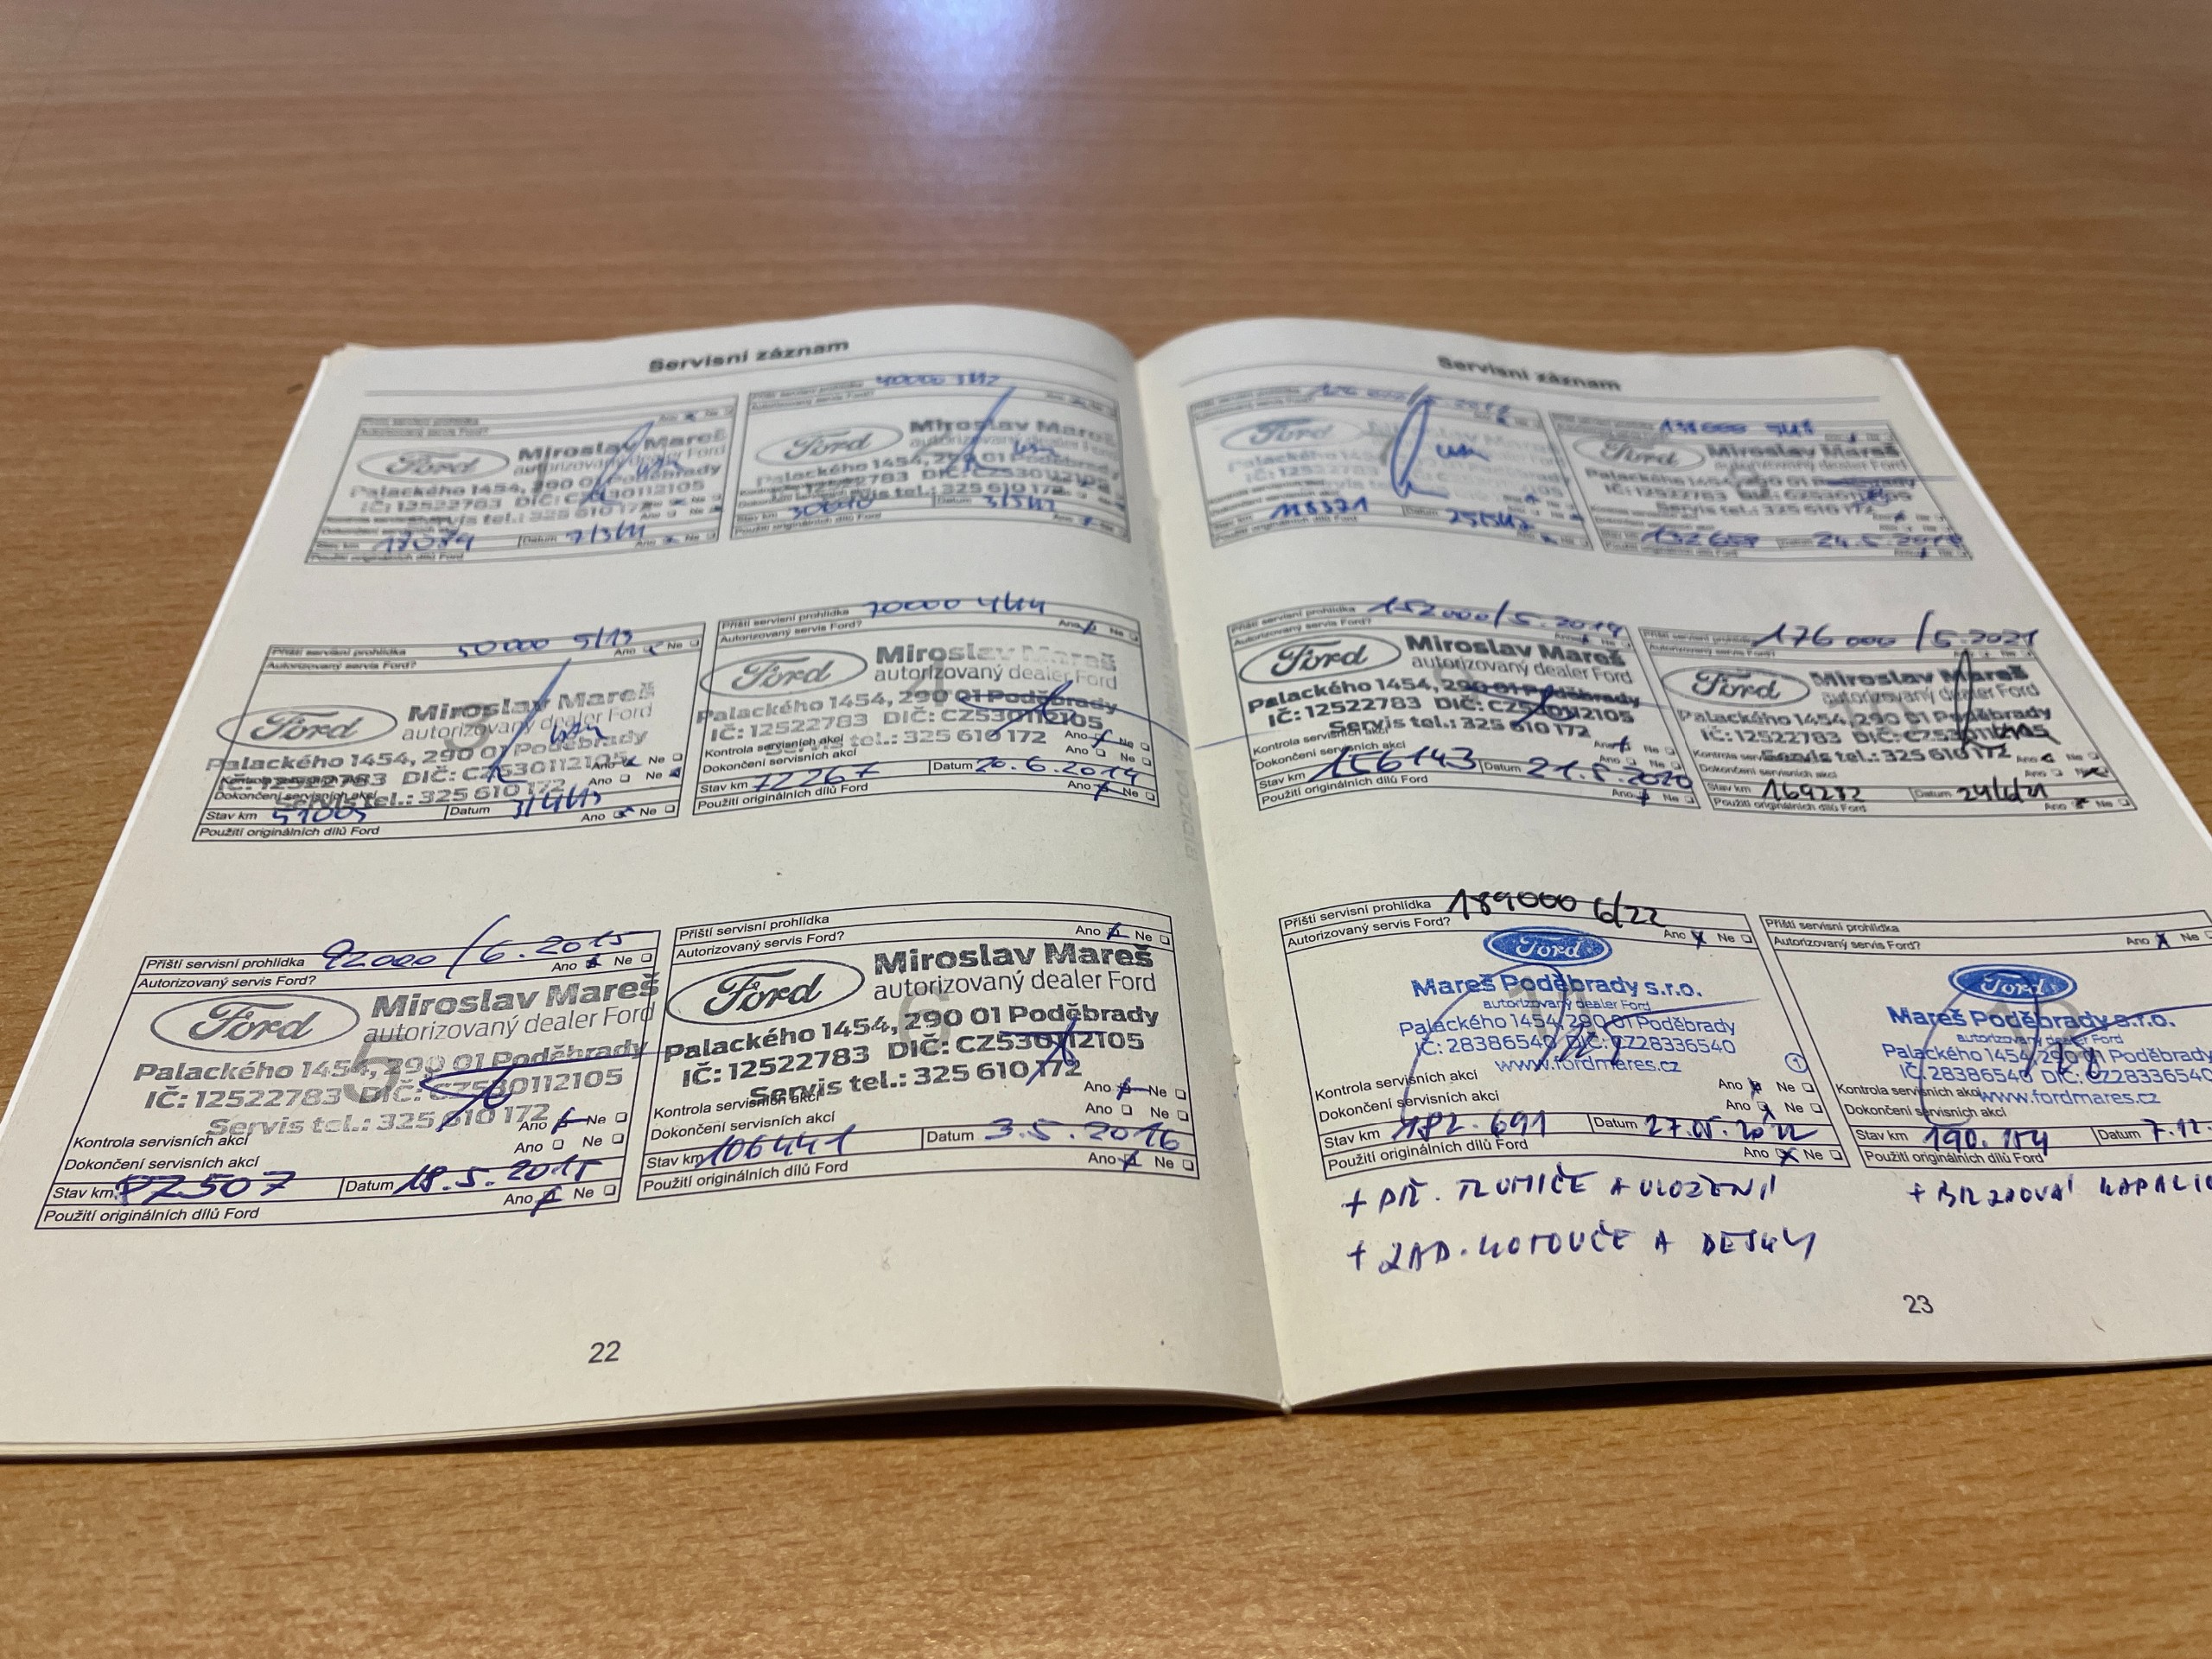 Servisní záznam
Autorizovaný servis Ford?
Ano Ne
Ford
Miroslav Mareš
autorizovaný dealer Ford
Palackého 1454, 290 01 Poděbrady
IČ: 12522783 DIČ: CZ530112105
Servis tel.: 325 610 172
Stav km
Datum 7/3/11
Ano Ne
Použití originálních dílů Ford
40000
Autorizovaný servis Ford?
Ford
Miroslav Mareš
autorizovaný dealer Ford
Palackého 1454, 290 01 Poděbrady
12522783 DIČ: CZ530112105
Servis tel.: 325 610 172
Stav km
Datum
Použití originálních dílů Ford
Příští servisní prohlídka 50000 5/13
Autorizovaný servis Ford?
Ano Ne
Ford
Miroslav Mareš
autorizovaný dealer Ford
Palackého 1454, 290 01 Poděbrady
IČ: 12522783 DIČ: CZ530112105
Servis tel.: 325 610 172
Ano Ne
Dokončení servisních akcí
Ano Ne
Stav km 51005
Datum
Použití originálních dílů Ford
Ano Ne
Příští servisní prohlídka 70000
Autorizovaný servis Ford?
Ano Ne
Ford
Miroslav Mareš
autorizovaný dealer Ford
Palackého 1454, 290 01 Poděbrady
IČ: 12522783 DIČ: CZ530112105
Servis tel.: 325 610 172
Kontrola servisních akcí
Ano Ne
Dokončení servisních akcí
Ano Ne
Stav km 72267
Datum 20.6.2014
Použití originálních dílů Ford
Ano Ne
Příští servisní prohlídka 92000/6.2015
Autorizovaný servis Ford?
Ano Ne
5
Ford
Miroslav Mareš
autorizovaný dealer Ford
Palackého 1454, 290 01 Poděbrady
IČ: 12522783 DIČ: CZ530112105
Servis tel.: 325 610 172
Kontrola servisních akcí
Ano Ne
Dokončení servisních akcí
Ano Ne
Stav km
Datum 18.5.2015
Použití originálních dílů Ford
Ano Ne
Příští servisní prohlídka
Autorizovaný servis Ford?
Ano Ne
6
Ford
Miroslav Mareš
autorizovaný dealer Ford
Palackého 1454, 290 01 Poděbrady
IČ: 12522783 DIČ: CZ530112105
Servis tel.: 325 610 172
Kontrola servisních akcí
Ano Ne
Dokončení servisních akcí
Ano Ne
Stav km 106441
Datum 3.5.2016
Použití originálních dílů Ford
Ano Ne
22
Servisní záznam
Ford
Stav km 118321
Datum
Použití originálních dílů Ford
138000
Ford
Miroslav Mareš
autorizovaný dealer Ford
Palackého 1454, 290 01 Poděbrady
IČ: 12522783 DIČ: CZ530112105
Servis tel.: 325 610 172
Stav km
Datum
Příští servisní prohlídka 152000/5.2019
Autorizovaný servis Ford?
Ano Ne
Ford
Miroslav Mareš
autorizovaný dealer Ford
Palackého 1454, 290 01 Poděbrady
IČ: 12522783 DIČ: CZ530112105
Servis tel.: 325 610 172
Kontrola servisních akcí
Ano Ne
Dokončení servisních akcí
Stav km 156143
Datum 21.5.2020
Použití originálních dílů Ford
Ano Ne
Příští servisní prohlídka 176000/5.2021
Autorizovaný servis Ford?
Ford
Miroslav Mareš
autorizovaný dealer Ford
Palackého 1454, 290 01 Poděbrady
IČ: 12522783 DIČ: CZ530112105
Servis tel.: 325 610 172
Kontrola servisních akcí
Ano Ne
Dokončení servisních akcí
Stav km
Datum
Použití originálních dílů Ford
Ano Ne
Příští servisní prohlídka 189000 6/22
Autorizovaný servis Ford?
Ano Ne
Ford
Mareš Poděbrady s.r.o.
autorizovaný dealer Ford
Palackého 1454, 290 01 Poděbrady
IČ: 28386540 DIČ: CZ28336540
www.fordmares.cz
1
Kontrola servisních akcí
Ano Ne
Dokončení servisních akcí
Ano Ne
Stav km 182.691
Datum 27.05.2022
Použití originálních dílů Ford
Ano Ne
+ PŘ. TLUMIČE A ULOŽENÍ
+ ZAD. KOTOUČE A DESKY
Příští servisní prohlídka
Autorizovaný servis Ford?
Ano Ne
Ford
Mareš Poděbrady s.r.o.
autorizovaný dealer Ford
Palackého 1454, 290 01 Poděbrady
IČ: 28386540 DIČ: CZ28336540
www.fordmares.cz
Kontrola servisních akcí
Dokončení servisních akcí
Stav km 190.154
Datum 7.12.
Použití originálních dílů Ford
+ BRZDOVÁ
23